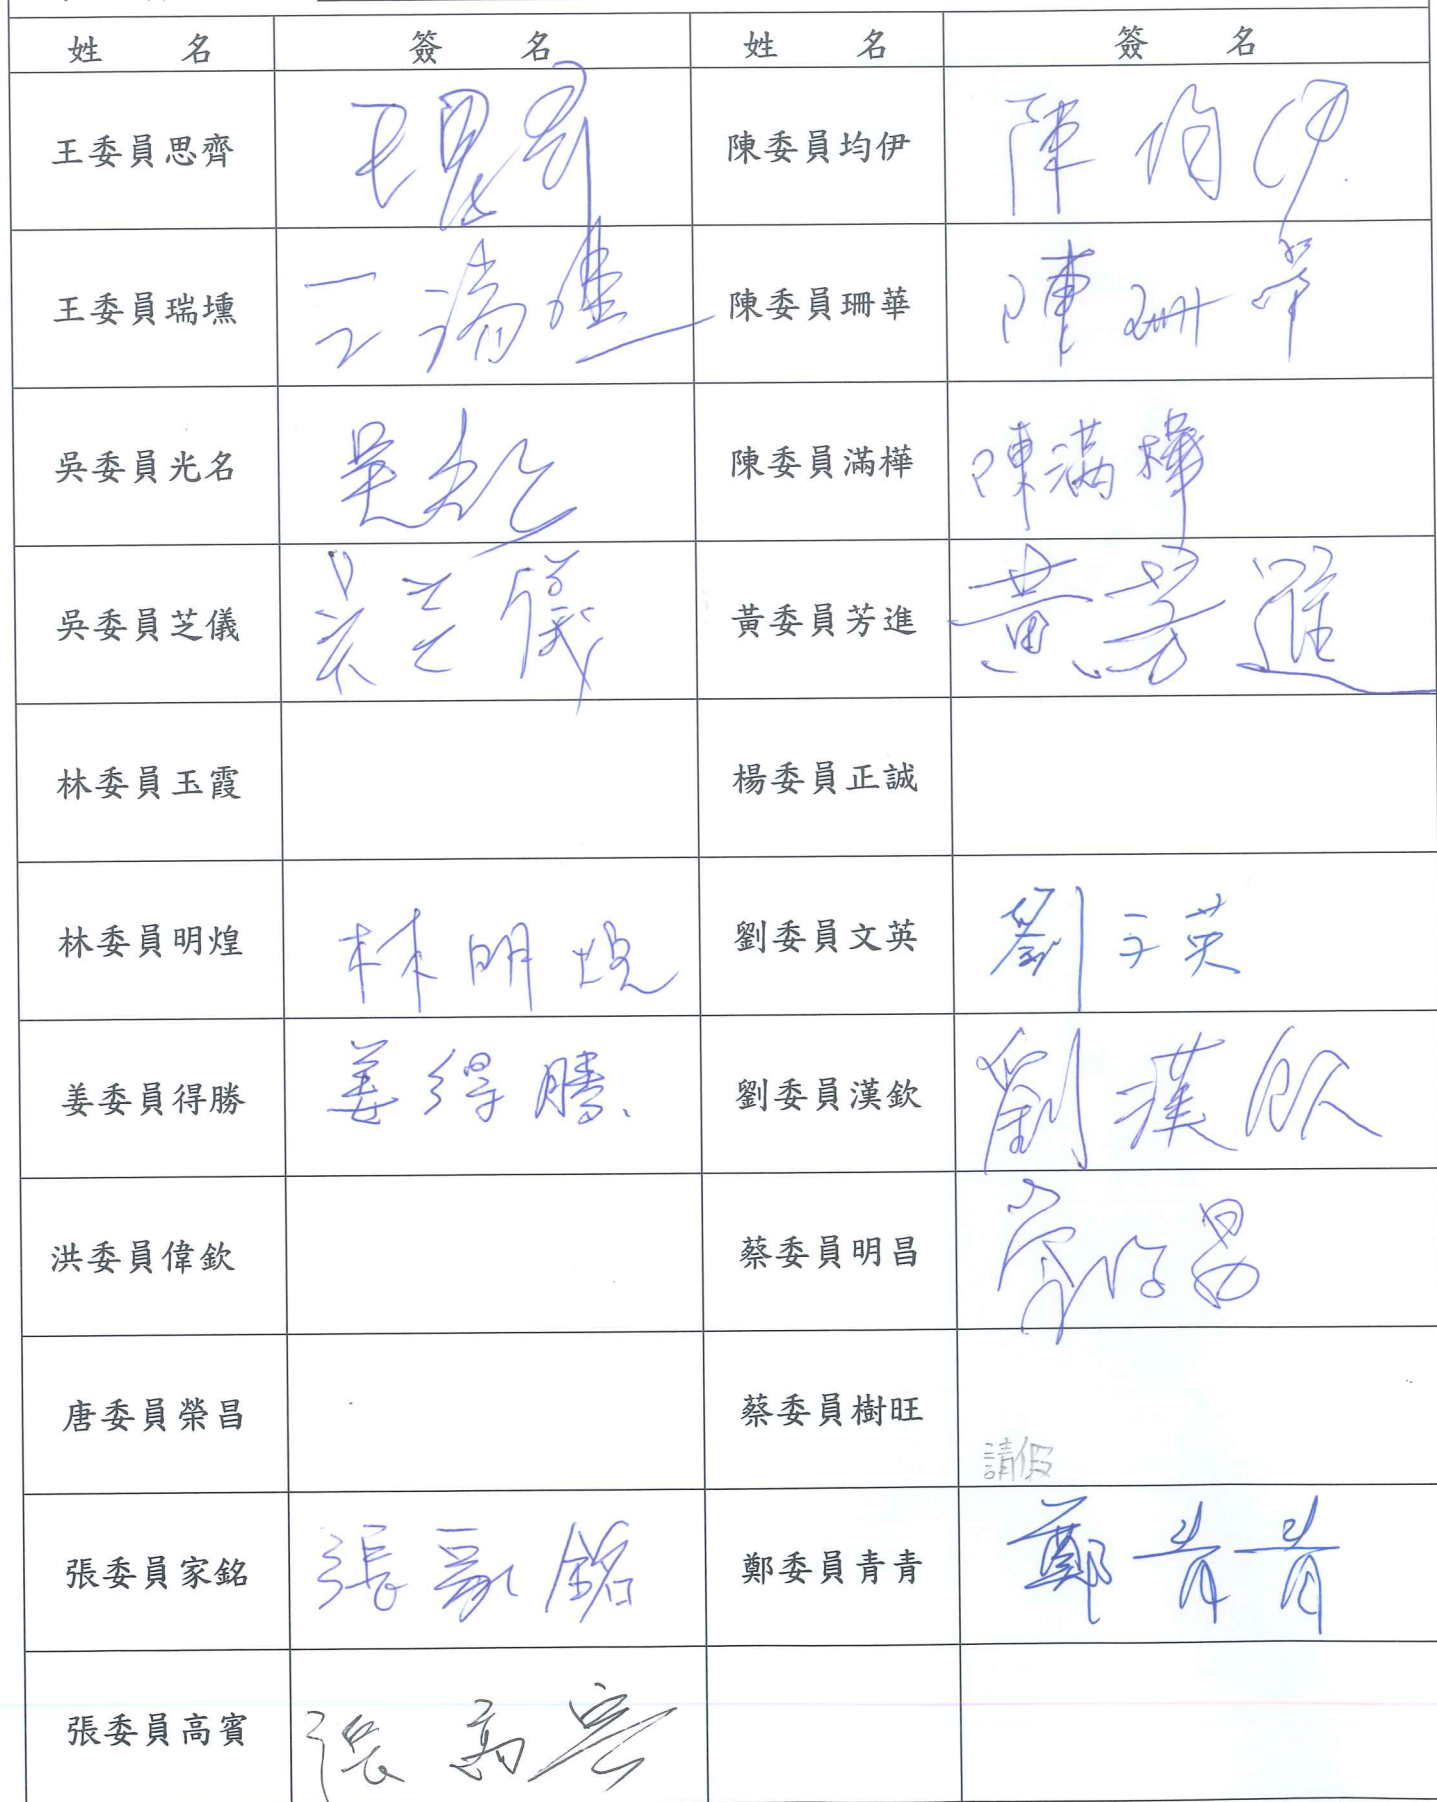 姓 名 簽 名 姓 名 簽 名
王委員思齊 王思齊 陳委員均伊 陳均伊
王委員瑞壎 王瑞壎 陳委員珊華 陳珊華
吳委員光名 吳光名 陳委員滿樺 陳滿樺
吳委員芝儀 吳芝儀 黃委員芳進 黃芳進
林委員玉霞 楊委員正誠
林委員明煌 林明煌 劉委員文英 劉文英
姜委員得勝 姜得勝 劉委員漢欽 劉漢欽
洪委員偉欽 蔡委員明昌 蔡明昌
唐委員榮昌 蔡委員樹旺 請假
張委員家銘 張家銘 鄭委員青青 鄭青青
張委員高賓 張高賓